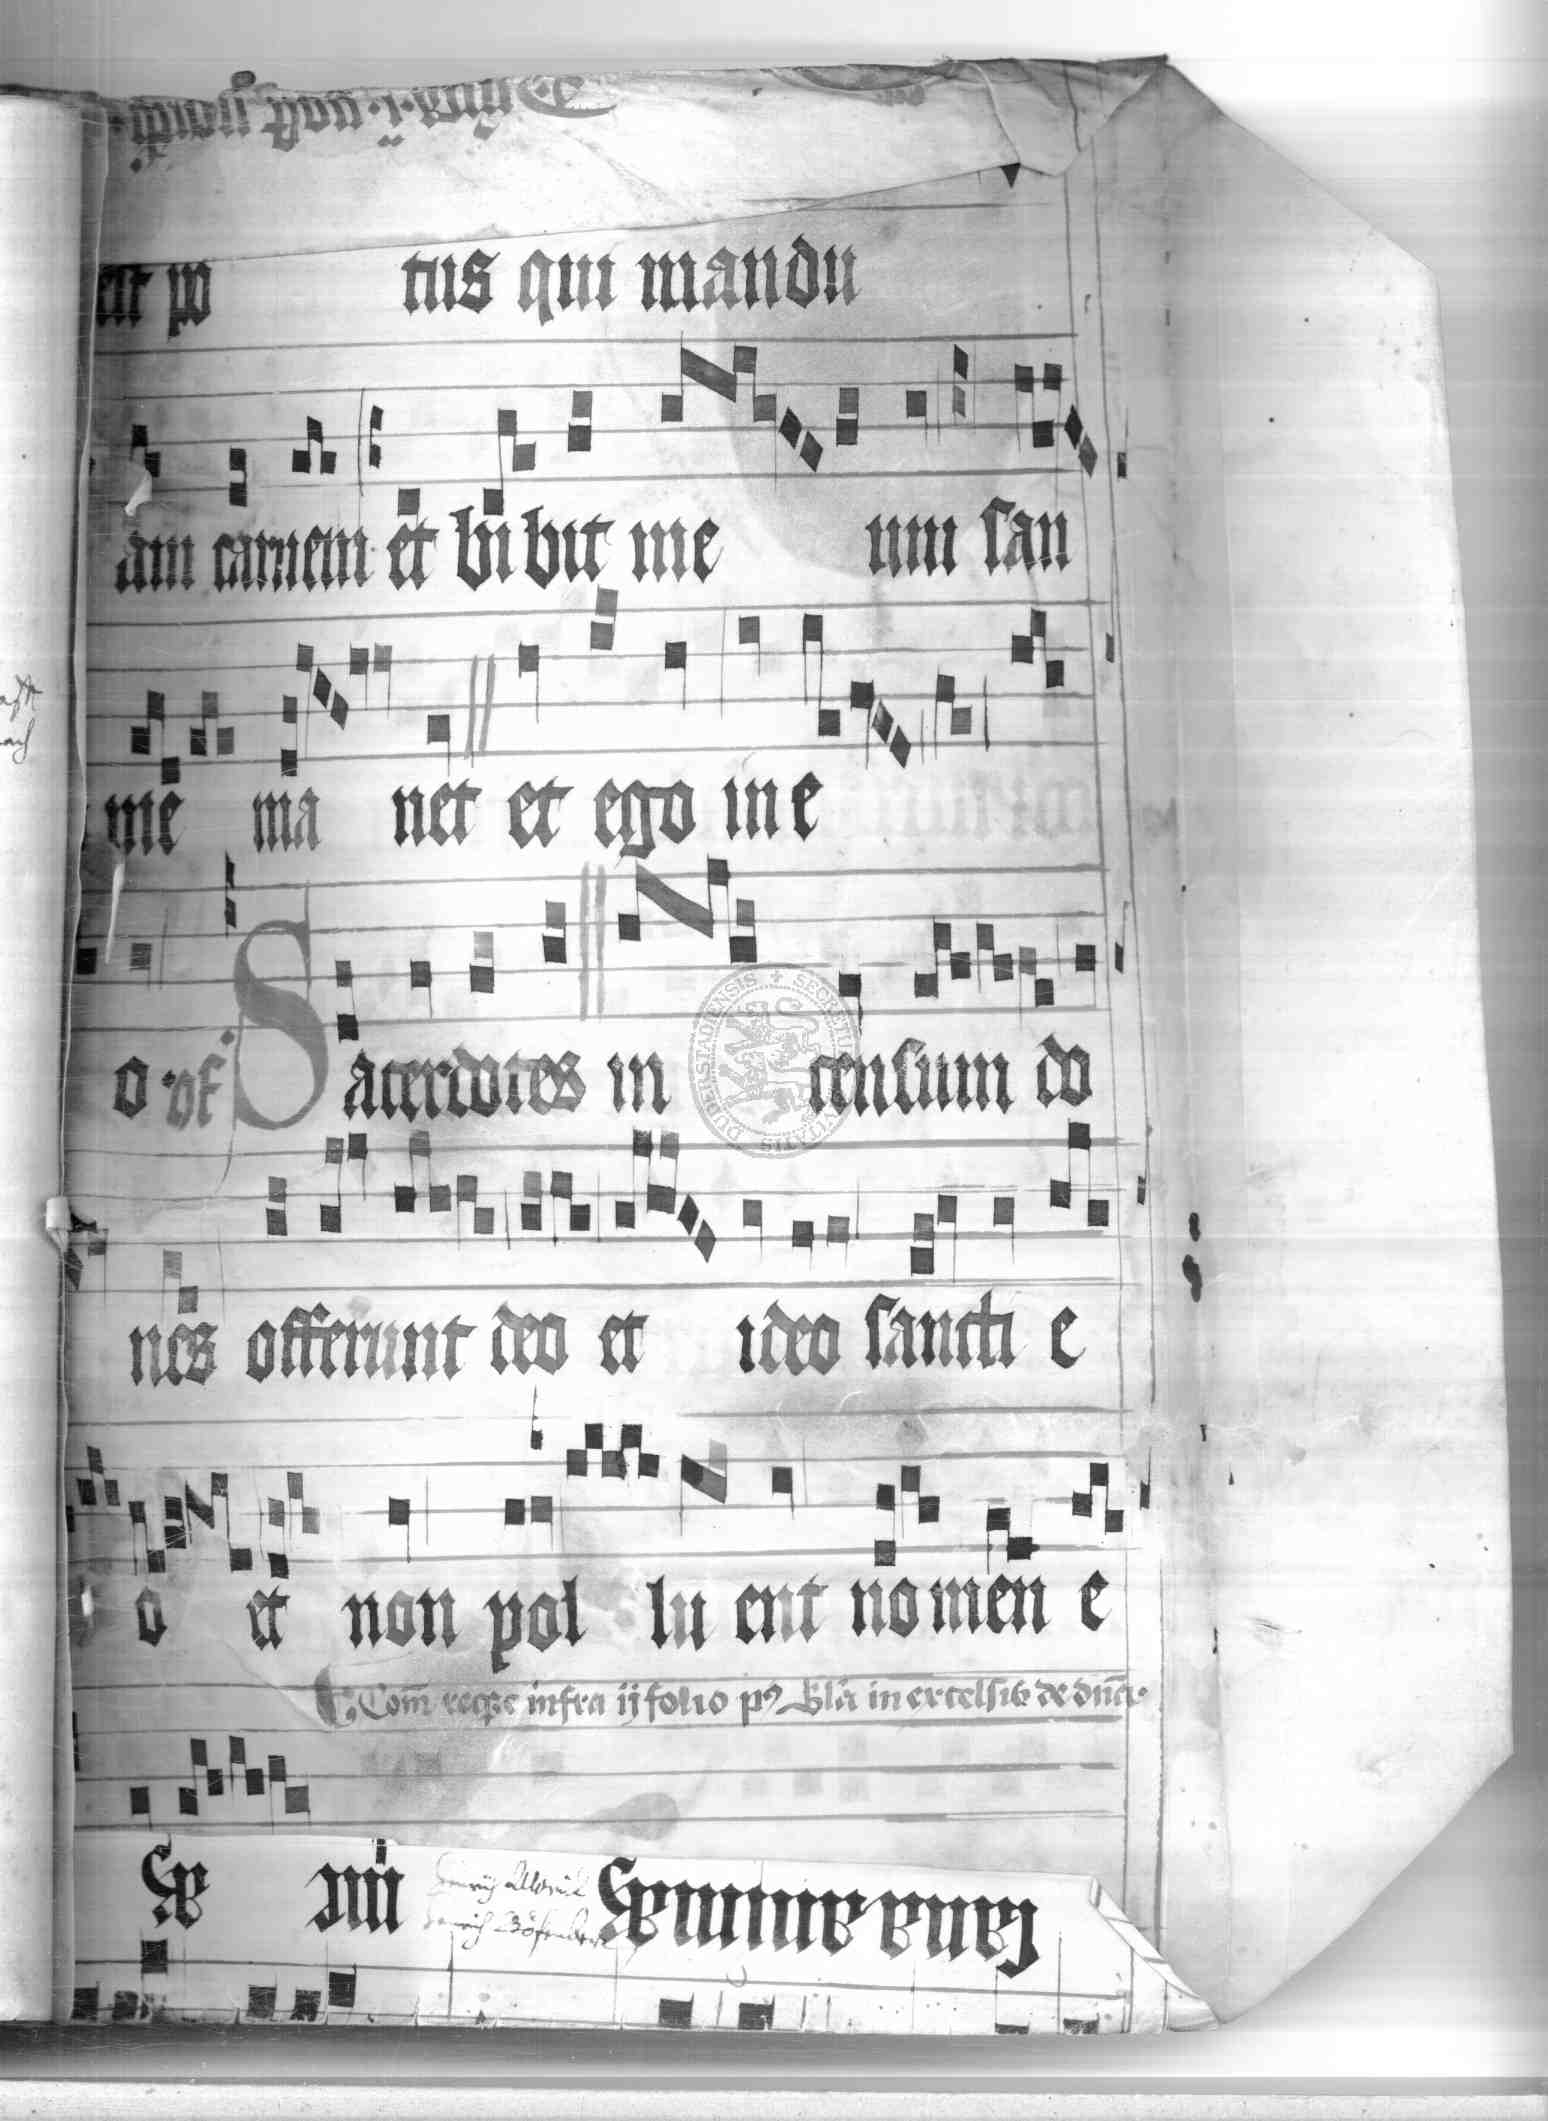 est po tus qui mandu
am carnem et bibit me um san
me ma net et ego in e
o. of Sacerdotes in censum do
nes offerunt deo et ideo sancti e
o et non pol lu ent nomen e
Com̄ reqͥre infra ij folio pꝰ Gl'a in excelsis de dn̄ca.
sana animaʒ
DUDERSTADIENSIS SECRETUM CIVITATIS